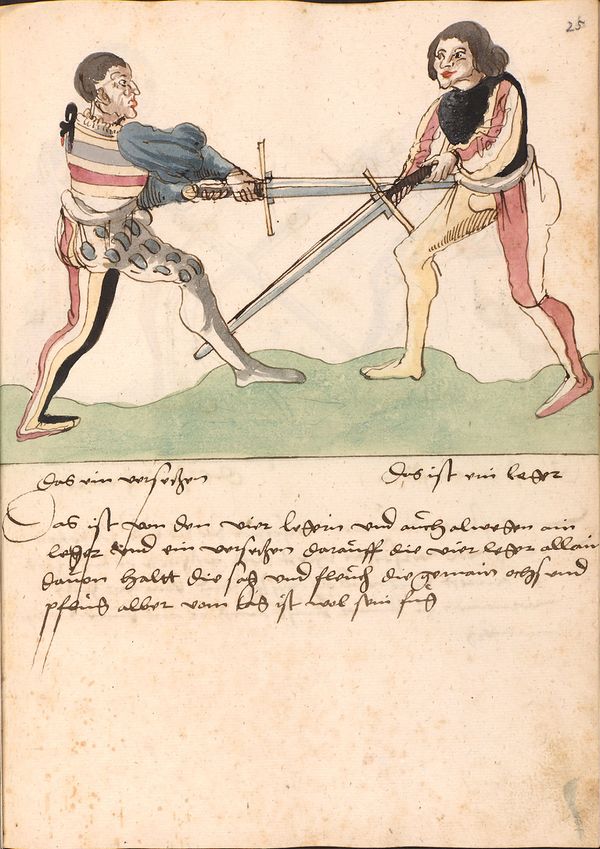 25
das ein versetzen
das ist ein leger
Das ist von den vier legern und auch alwegen ain
leger und ein versetzen darauff die vier leger allain
dauon haltt die sag und fleuch die gemain ochs und
pflug alber vom tag ist wol sein fug